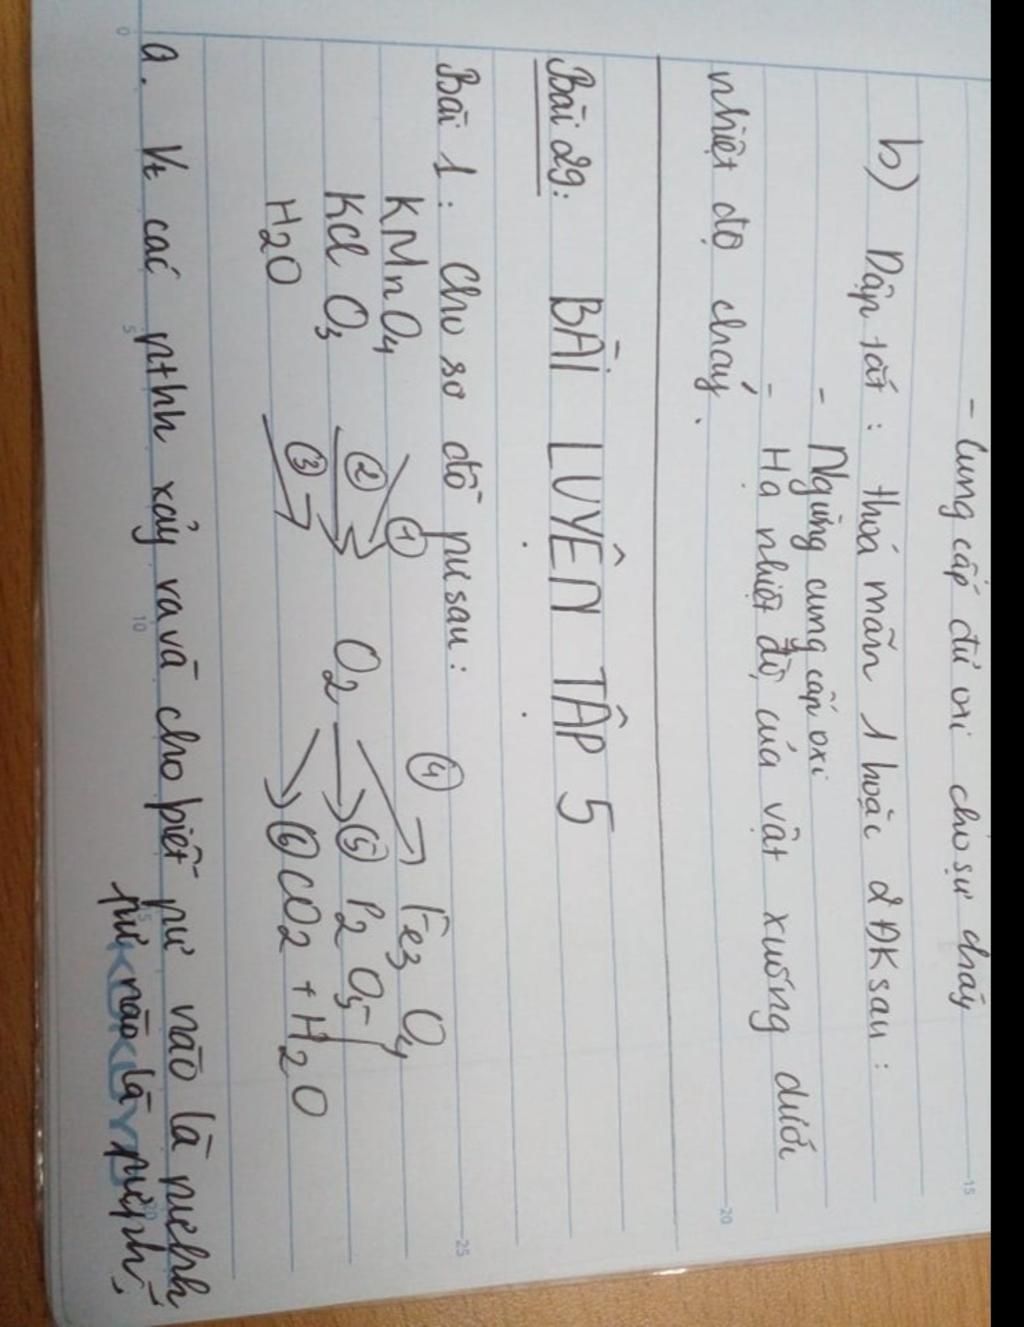 - Cung cấp đủ oxi cho sự cháy
b) Dập tắt : thoả mãn 1 hoặc 2 ĐK sau :
- Ngừng cung cấp oxi
- Hạ nhiệt độ của vật xuống dưới
nhiệt độ cháy.
Bài 29: BÀI LUYỆN TẬP 5
Bài 1 : Cho sơ đồ pư sau :
KMnO4 ① ④ Fe3O4
KClO3 ② O2 ⑤ P2O5
H2O ③ ⑥ CO2 + H2O
a. Vt các pthh xảy ra và cho biết pư nào là pưhh
pư nào là pưph